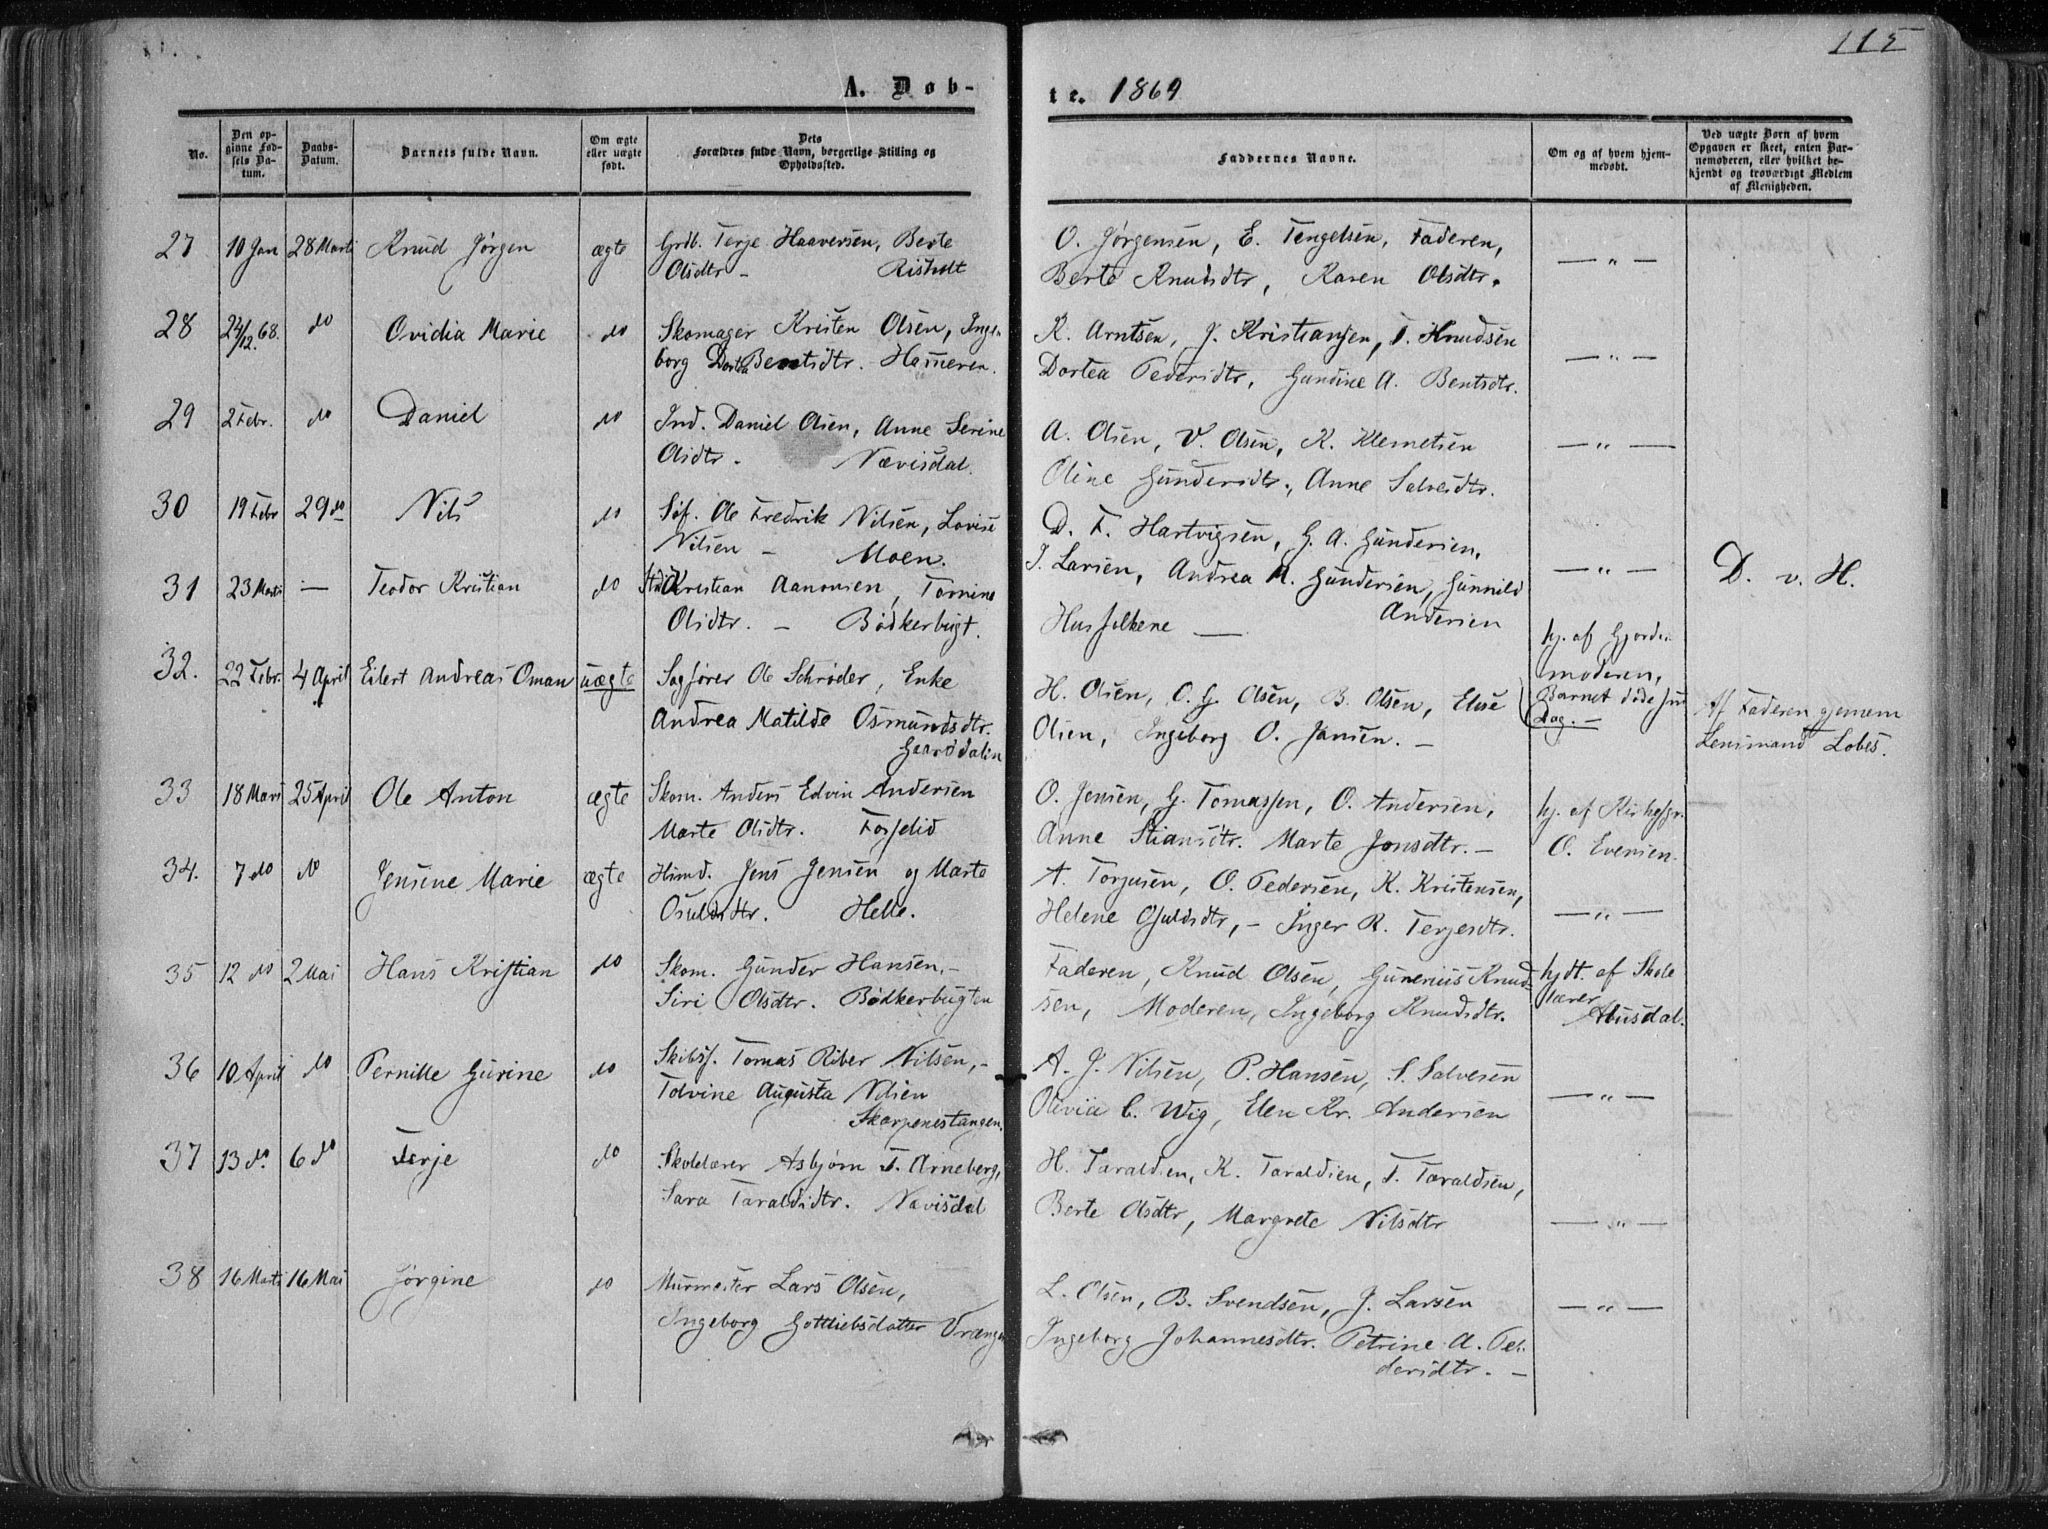 115
A. Døb-
te. 1869
No.
Den opginne Fødsels Datum.
Daabs-Datum.
Barnets fulde Navn.
Om ægte eller uægte født.
Dets Forældres fulde Navn, borgerlige Stilling og Opholdssted.
Faddernes Navne.
Om og af hvem hjemmedøbt.
Ved uægte Børn af hvem Opgaven er skeet, enten Barnemoderen, eller hvilket bekjendt og troværdigt Medlem af Menigheden.
27 10 Jan 28 Marts Knud Jørgen ægte Grdb. Terje Haaversen, Berte
Olsdtr - Risholt
O. Jørgensen, E. Tengelsen, Faderen,
Berte Knudsdtr, Karen Olsdtr.
— " —
28 22/12 68. do Ovidia Marie do Skomager Kristen Olsen, Inge-
borg Dortea Bentsdtr. Hammeren.
K. Arntsen, J. Kristiansen, T. Knudsen
Dortea Pedersdtr, Gundine A. Bentsdtr.
— " —
29 2 Febr. do Daniel do Ind. Daniel Olsen, Anne Serine
Olsdtr. Nævisdal.
A. Olsen, V. Olsen, K. Klemetsen
Oline Gundersdtr., Anne Salvesdtr.
— " —
30 19 Febr 29 do Nils do Søf. Ole Fredrik Nilsen, Lovise
Nilsen - Moen.
D. F. Hartvigsen, G. A. Gundersen,
J. Larsen, Andrea M. Gundersen, Gunnild
Andersen
— " —
D. v. H.
31 23 Marts — Teodor Kristian do Kristian Aanonsen, Tomine
Olsdtr. - Bødkerbugt.
Husfolkene —
hj. af Gjorde-
moderen,
32. 22 Febr. 4 April Eilert Andreas Oman uægte Sagfører Ole Schrøder, Enke
Andrea Matilde Osmundsdtr.
Gaarddalen
H. Olsen, O. G. Olsen, B. Olsen, Else
Olsen, Ingeborg O. Jansen. -
Barnet døde
Dag. -
Af Faderen gjennem
Lensmand Lobes.
33 18 Mars 25 April Ole Anton ægte Skom. Anders Edvin Andersen
Marte Olsdtr. Fosselid
O. Jensen, G. Tomassen, O. Andersen,
Anne Stiansdtr. Marte Jonsdtr. -
hj. af Kirkesgr.
O. Evensen.
34. 7 do do Jensine Marie ægte Husmd. Jens Jensen og Marte
Osuldsdtr. Helle.
A. Torjusen, O. Pedersen, K. Kristensen,
Helene Osuldsdtr, - Inger R. Terjesdtr.
— " —
35 12 do 2 Mai Hans Kristian do Skom. Gunder Hansen, -
Siri Olsdtr. Bødkerbugten
Faderen, Knud Olsen, Gunerius Knud-
sen, Moderen, Ingeborg Knudsdtr.
hjdt. af Skole
lærer
Abusdal.
36 10 April do Pernille Gurine do Skibsf. Tomas Riber Nilsen, -
Tolvine Augusta Nilsen
Skarpenestangen.
A. J. Nilsen, P. Hansen, S. Salvesen
Olivia C. Wig, Elen Kr. Andersen
— " —
37 13 do. 6 do Terje do Skolelærer Asbjørn T. Arneberg,
Sara Taraldsdtr. Nævisdal
H. Taraldsen, K. Taraldsen, T. Taraldsen,
Berte Olsdtr, Margrete Nilsdtr
— " —
38 16 Marts 16 Mai Jørgine do Murmester Lars Olsen,
Ingeborg Gottliebsdatter Vrængen
L. Olsen, B. Svendsen, J. Larsen
Ingeborg Johannesdtr. Petrine A. Pe-
dersdtr. -
— " —